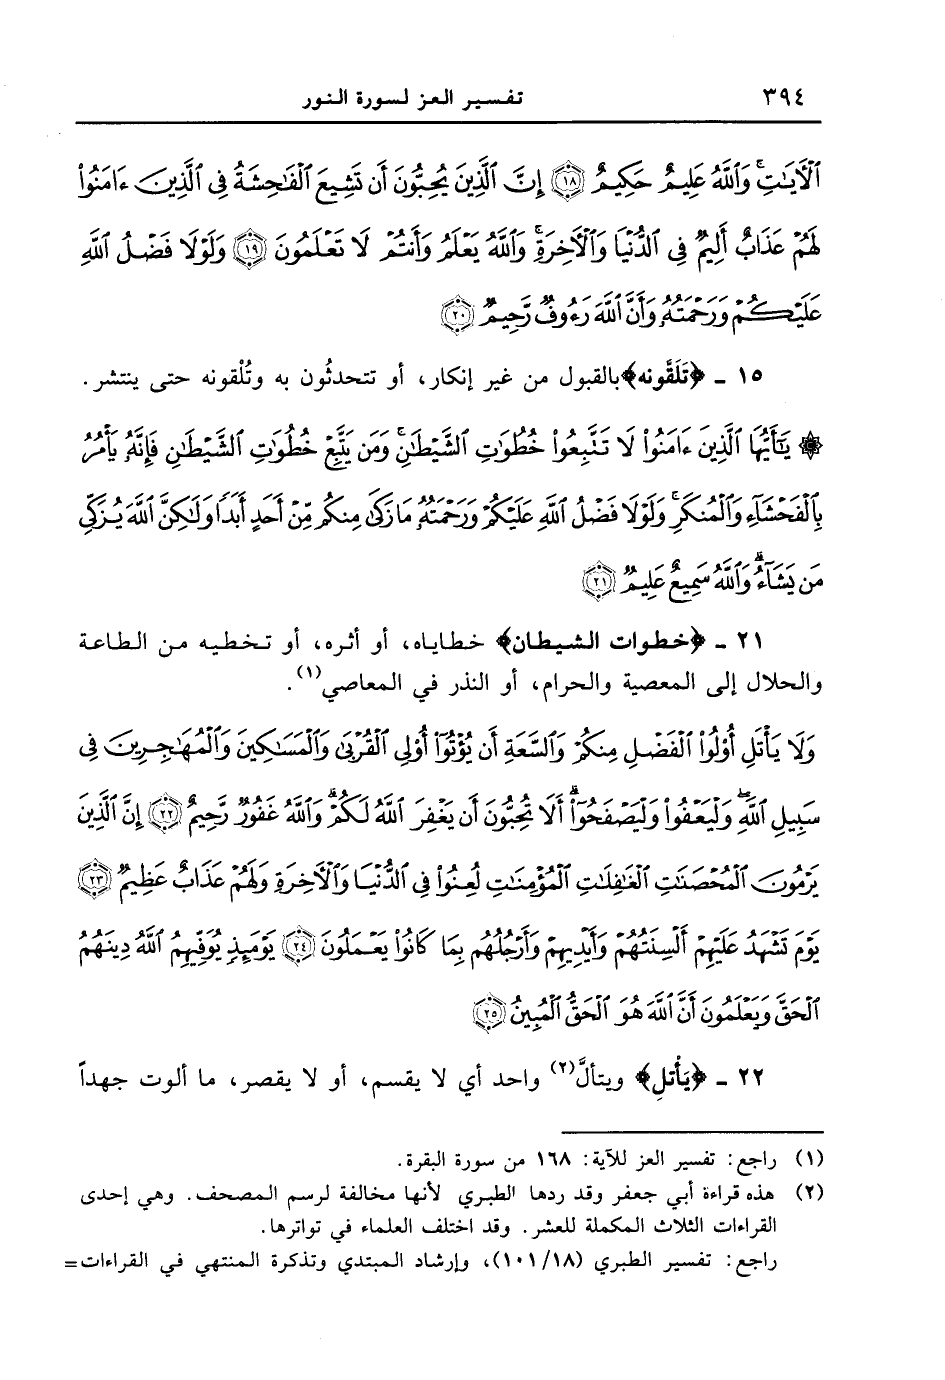 ٣٩٤ تفسير العز لسورة النور
ٱلْأَيَـٰتِ ۚ وَٱللَّهُ عَلِيمٌ حَكِيمٌ ١٨ إِنَّ ٱلَّذِينَ يُحِبُّونَ أَن تَشِيعَ ٱلْفَـٰحِشَةُ فِى ٱلَّذِينَ ءَامَنُوا۟
لَهُمْ عَذَابٌ أَلِيمٌ فِى ٱلدُّنْيَا وَٱلْأَخِرَةِ ۚ وَٱللَّهُ يَعْلَمُ وَأَنتُمْ لَا تَعْلَمُونَ ١٩ وَلَوْلَا فَضْلُ ٱللَّهِ
عَلَيْكُمْ وَرَحْمَتُهُۥ وَأَنَّ ٱللَّهَ رَءُوفٌ رَّحِيمٌ ٢٠
١٥ ـ ﴿تَلَقَّونه﴾ بالقبول من غير إنكار، أو تتحدثُون به وتُلْقونه حتى ينتشر.
۞ يَـٰٓأَيُّهَا ٱلَّذِينَ ءَامَنُوا۟ لَا تَتَّبِعُوا۟ خُطُوَٰتِ ٱلشَّيْطَـٰنِ ۚ وَمَن يَتَّبِعْ خُطُوَٰتِ ٱلشَّيْطَـٰنِ فَإِنَّهُۥ يَأْمُرُ
بِٱلْفَحْشَآءِ وَٱلْمُنكَرِ ۚ وَلَوْلَا فَضْلُ ٱللَّهِ عَلَيْكُمْ وَرَحْمَتُهُۥ مَا زَكَىٰ مِنكُم مِّنْ أَحَدٍ أَبَدًا وَلَـٰكِنَّ ٱللَّهَ يُزَكِّى
مَن يَشَآءُ ۗ وَٱللَّهُ سَمِيعٌ عَلِيمٌ ٢١
٢١ ـ ﴿خطوات الشيطان﴾ خطاياه، أو أثره، أو تخطيه من الطاعة
والحلال إلى المعصية والحرام، أو النذر في المعاصي(١).
وَلَا يَأْتَلِ أُو۟لُوا۟ ٱلْفَضْلِ مِنكُمْ وَٱلسَّعَةِ أَن يُؤْتُوٓا۟ أُو۟لِى ٱلْقُرْبَىٰ وَٱلْمَسَـٰكِينَ وَٱلْمُهَـٰجِرِينَ فِى
سَبِيلِ ٱللَّهِ ۖ وَلْيَعْفُوا۟ وَلْيَصْفَحُوٓا۟ ۗ أَلَا تُحِبُّونَ أَن يَغْفِرَ ٱللَّهُ لَكُمْ ۗ وَٱللَّهُ غَفُورٌ رَّحِيمٌ ٢٢ إِنَّ ٱلَّذِينَ
يَرْمُونَ ٱلْمُحْصَنَـٰتِ ٱلْغَـٰفِلَـٰتِ ٱلْمُؤْمِنَـٰتِ لُعِنُوا۟ فِى ٱلدُّنْيَا وَٱلْأَخِرَةِ وَلَهُمْ عَذَابٌ عَظِيمٌ ٢٣
يَوْمَ تَشْهَدُ عَلَيْهِمْ أَلْسِنَتُهُمْ وَأَيْدِيهِمْ وَأَرْجُلُهُم بِمَا كَانُوا۟ يَعْمَلُونَ ٢٤ يَوْمَئِذٍ يُوَفِّيهِمُ ٱللَّهُ دِينَهُمُ
ٱلْحَقَّ وَيَعْلَمُونَ أَنَّ ٱللَّهَ هُوَ ٱلْحَقُّ ٱلْمُبِينُ ٢٥
٢٢ ـ ﴿يَأْتلِ﴾ ويتألَّ(٢) واحد أي لا يقسم، أو لا يقصر، ما ألوت جهداً
(١) راجع: تفسير العز للآية: ١٦٨ من سورة البقرة.
(٢) هذه قراءة أبي جعفر وقد ردها الطبري لأنها مخالفة لرسم المصحف. وهي إحدى
القراءات الثلاث المكملة للعشر. وقد اختلف العلماء في تواترها.
راجع: تفسير الطبري (١٠١/١٨)، وإرشاد المبتدي وتذكرة المنتهي في القراءات=